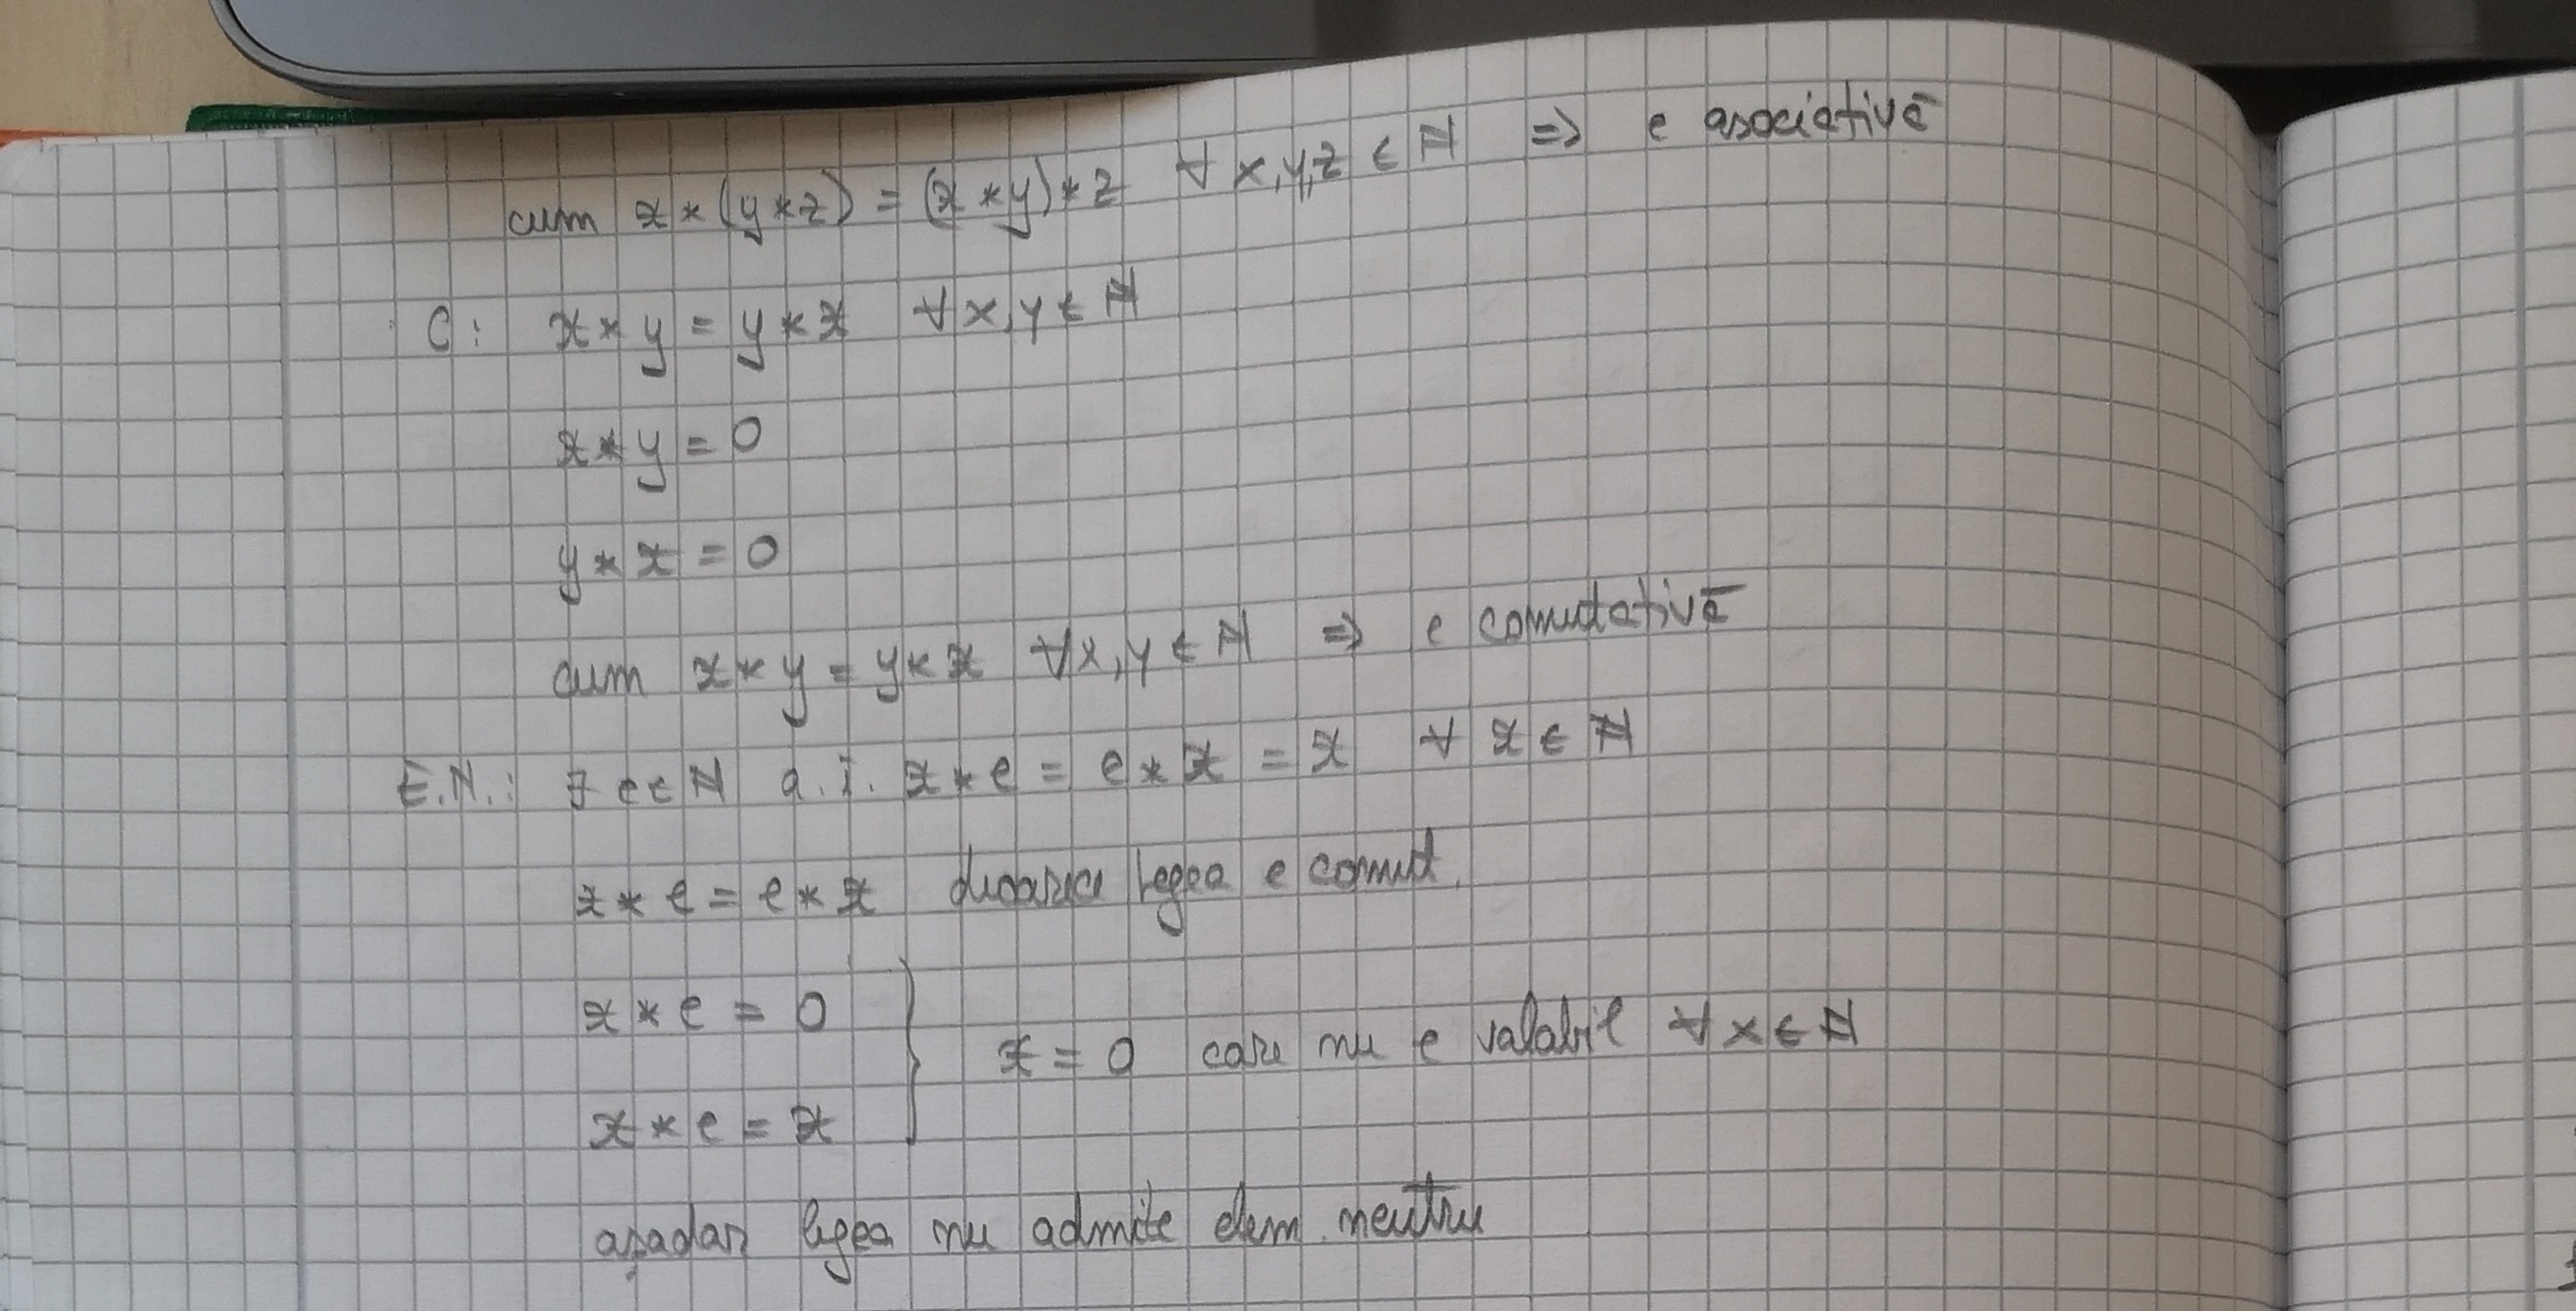 cum x * (y * z) = (x * y) * z ∀ x, y, z ∈ ℕ => e asociativă
C: x * y = y * x ∀ x, y ∈ ℕ
x * y = 0
y * x = 0
cum x * y = y * x ∀ x, y ∈ ℕ => e comutativă
E.N.: ∃ e ∈ ℕ a. î. x * e = e * x = x ∀ x ∈ ℕ
x * e = e * x deoarece legea e comut.
x * e = 0
x = 0 care nu e valabil ∀ x ∈ ℕ
x * e = x
așadar legea nu admite elem. neutru